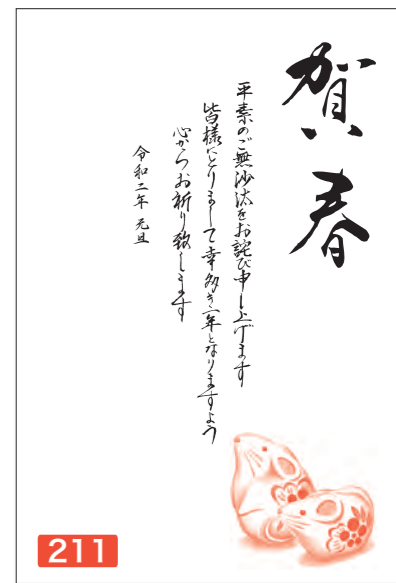 賀春
平素のご無沙汰をお詫び申し上げます
皆様にとりまして幸多き一年となりますよう
心からお祈り致します
令和二年 元旦
211